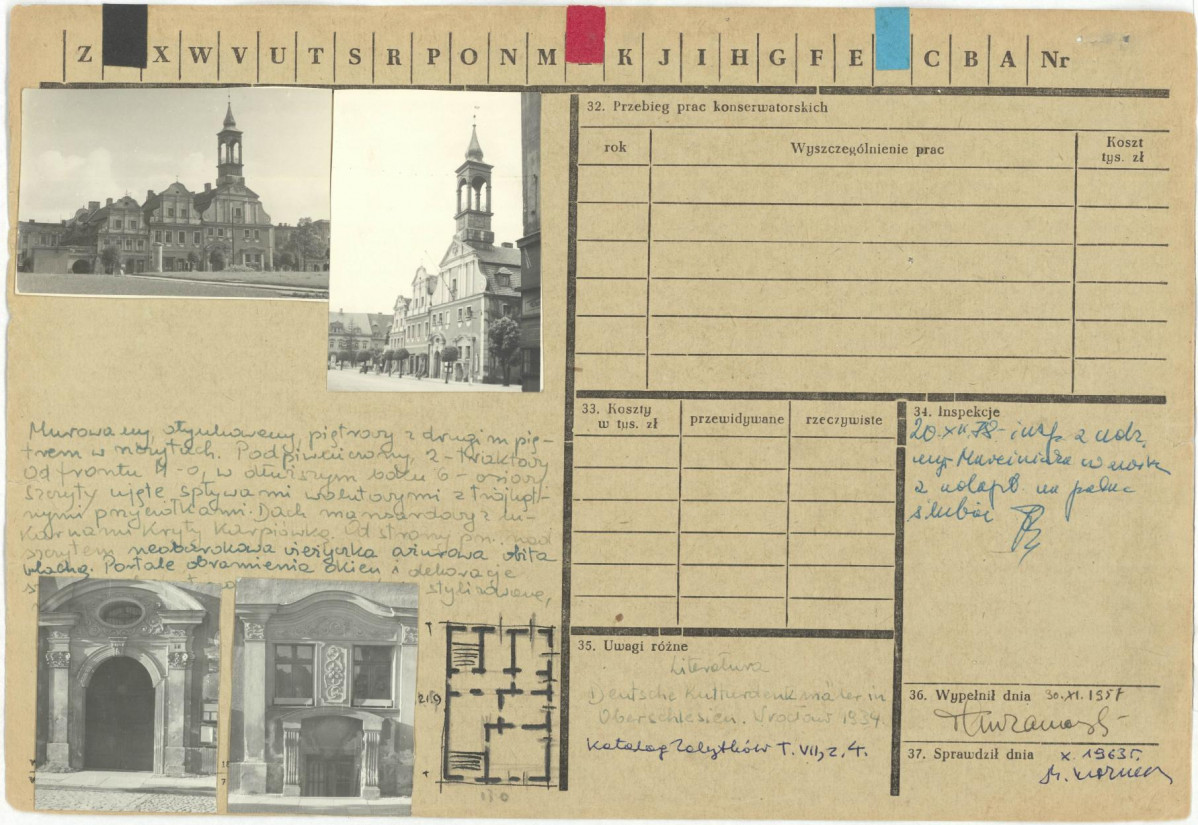 Z X W V U T S R P O N M K J I H G F E C B A Nr
Murowany, otynkowany, piętrowy z drugim pię-
trem w szczytach. Podpiwniczony, 2-traktowy
Od frontu 4-o, w dłuższym boku 6-osiowy
szczyty ujęte spływami wolutowymi z trójkąt-
nymi przyczółkami. Dach mansardowy z lu-
karnami kryty karpiówką. Od strony pn. nad
szczytem neobarokowa wieżyczka ażurowa obita
blachą. Portale obramienia okien i dekoracje
stylizowane,
13 0
32. Przebieg prac konserwatorskich
rok
Wyszczególnienie prac
Koszt
tys. zł
33. Koszty
w tys. zł
przewidywane
rzeczywiste
34. Inspekcje
20.XII.78 - insp. z udz.
mgr
z
ślubów
35. Uwagi różne
Literatura
Deutsche Kulturdenkmäler in
Oberschlesien. Wrocław 1934.
Katalog Zabytków T. VII, z. 4.
36. Wypełnił dnia 30.XI.1957
37. Sprawdził dnia X. 1963 r.